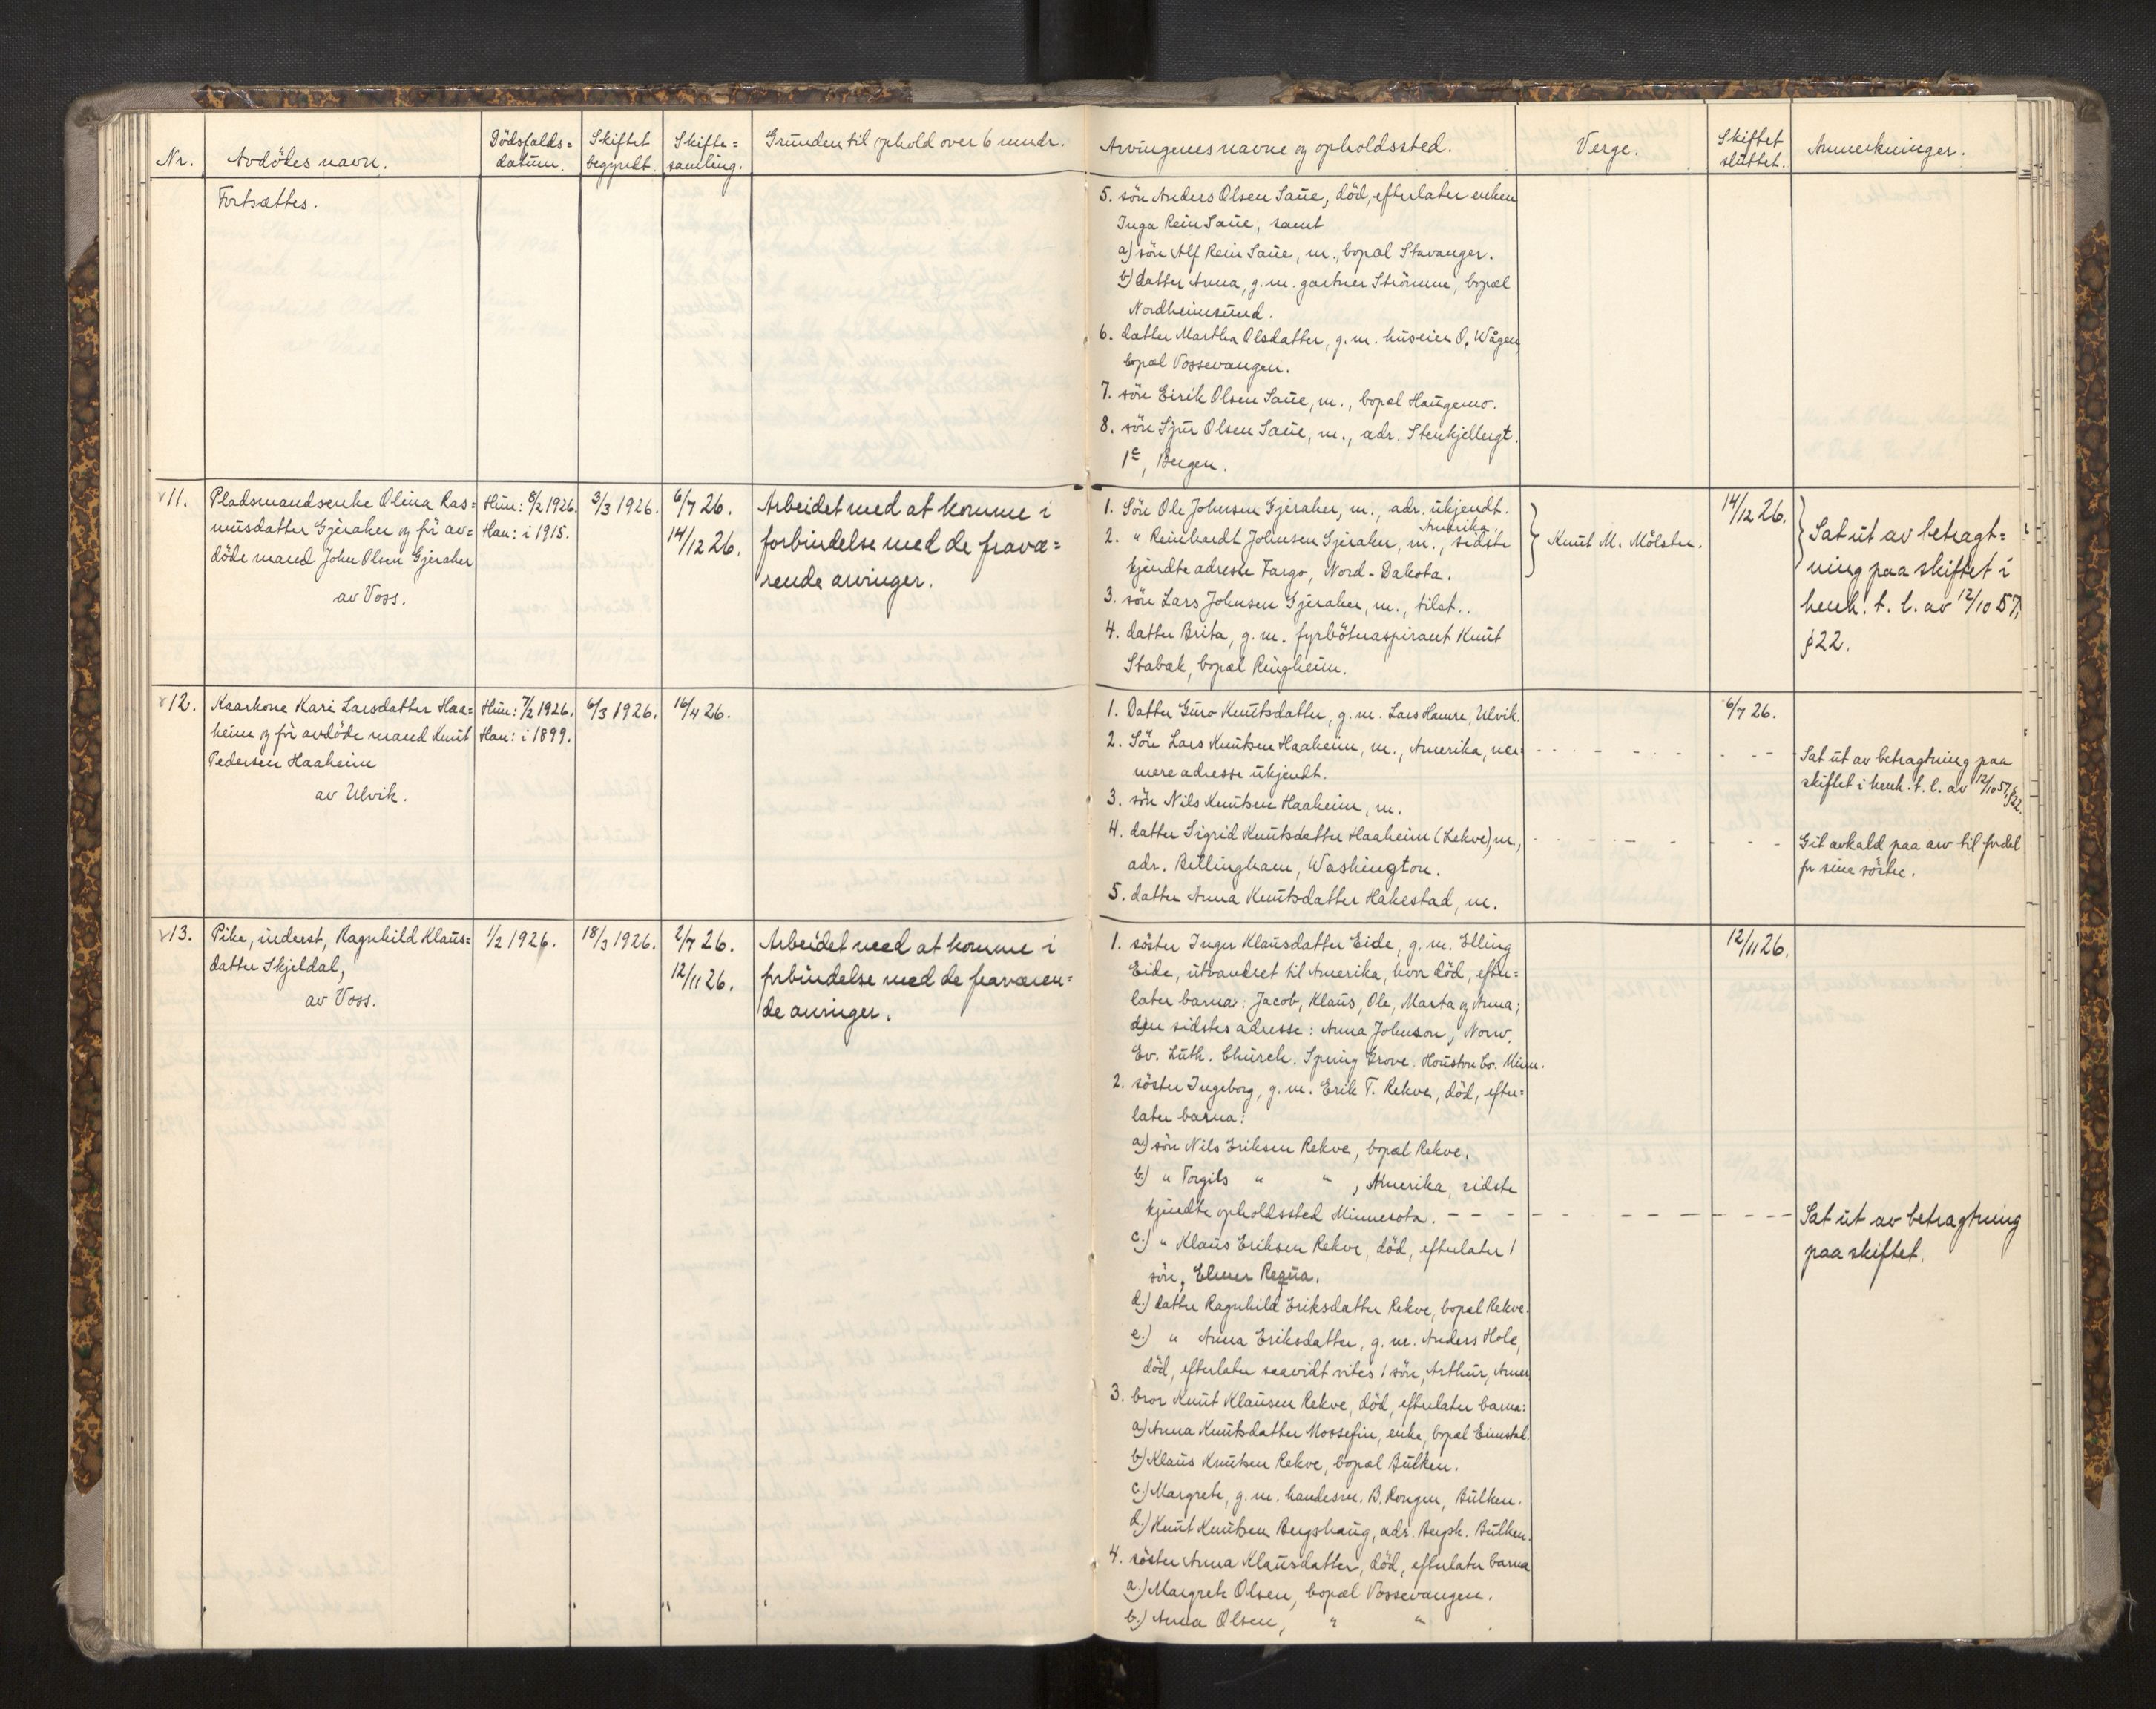 Nr. Avdödes navn. Dödsfalds=datum. Skiftet begyndt. Skifte=samling. Grunden til ophold over 6 mndr. Arvingenes navne og opholdssted. Verge. Skiftet sluttet. Anmerkninger.
Fortsættes.
5. sön Anders Olsen Saue, död, efterlater enken
Inga Rein Saue, samt
a) sön Alf Rein Saue, m., bopæl Stavanger.
b) datter Anna, g.m. gartner Strömme, bopæl
Nordheimsund.
6. datter Martha Olsdatter, g.m. huseier O. Wågen,
bopæl Vossevangen.
7. sön Eirik Olsen Saue, m., bopæl Haugemo.
8. sön Sjur Olsen Saue, m., adr. Stenkjellergt.
1e, Bergen.
11. Pladsmandsenke Olina Ras=
musdatter Gjeraker og för av=
döde mand John Olsen Gjeraker
av Voss.
Hun: 8/2 1926.
Han: i 1915.
3/3 1926.
6/7 26.
14/12 26.
Arbeidet med at komme i
forbindelse med de fravæ=
rende arvinger.
1. Sön Ole Johnsen Gjeraker, m., adr. ukjendt.
Amerika.
2. " Reinhardt Johnsen Gjeraker, m., sidste
kjendte adresse Fargo, Nord-Dakota.
3. sön Lars Johnsen Gjeraker, m., tilst..
4. datter Brita, g.m. fyrböteraspirant Knut
Stabak, bopæl Ringheim.
Knut M. Mölster.
14/12 26.
Sat ut av betragt=
ning paa skiftet i
henh. t. l. av 12/10 57,
§ 22.
12. Kaarkone Kari Larsdatter Haa=
heim og för avdöde mand Knut
Pedersen Haaheim
av Ulvik.
Hun: 7/2 1926.
Han: i 1899.
6/3 1926.
16/4 26.
1. Datter Guro Knutsdatter, g.m. Lars Hamre, Ulvik.
2. Sön Lars Knutsen Haaheim, m., Amerika, nær=
mere adresse ukjendt.
3. sön Nils Knutsen Haaheim, m.
4. datter Sigrid Knutsdatter Haaheim (Lekve), m.,
adr. Bellingham, Washington.
5. datter Anna Knutsdatter Håkestad, m.
6/7 26.
Sat ut av betragtning paa
skiftet i henh. t. l. av 12/10 57, § 22.
Git avkald paa arv til fordel
for sine söstre.
13. Pike, inderst, Ragnhild Klaus=
datter Skjeldal,
av Voss.
1/2 1926.
18/3 1926.
2/7 26.
12/11 26.
Arbeidet med at komme i
forbindelse med de fraværen=
de arvinger.
1. söster Inger Klausdatter Eide, g.m. Elling
Eide, utvandret til Amerika, hvor död, efter=
later barna: Jacob, Klaus, Ole, Marta og Anna;
den sidstes adresse: Anna Johnson, Norw.
Ev. Luth. Church. Spring Grove. Houston Co. Minn.
2. söster Ingeborg, g.m. Erik T. Rekve, död, efter=
later barna:
a) sön Nils Eriksen Rekve, bopæl Rekve.
b) " Torgils " " , Amerika, sidste
kjendte opholdssted Minnesota.
c.) " Klaus Eriksen Rekve, död, efterlater 1
sön, Elmer Requa.
d.) datter Ragnhild Eriksdatter Rekve, bopæl Rekve.
e.) " Anna Eriksdatter, g.m. Anders Hole,
död, efterlater saavidt vites 1 sön, Arthur, Amer.
3. bror Knut Klausen Rekve, död, efterlater barna:
a) Anna Knutsdatter Mossefin, enke, bopæl Eimstal.
b) Klaus Knutsen Rekve, bopæl Bulken.
c.) Margrete, g.m. handelsm. B. Rongen, Bulken.
d.) Knut Knutsen Bergshaug, adr. Bergsh. Bulken.
4. söster Anna Klausdatter, död, efterlater barna
a.) Margrete Olsen, bopæl Vossevangen.
b.) Anna Olsen, " "
12/11 26.
Sat ut av betragtning
paa skiftet.